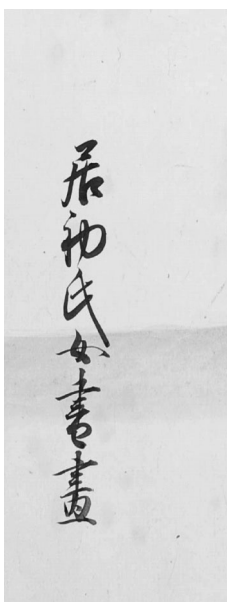 居初氏女書畫